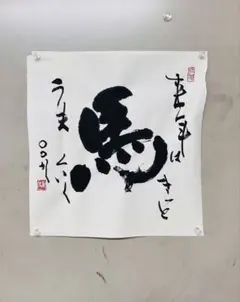 来年は
きっと
馬
うま
くいく